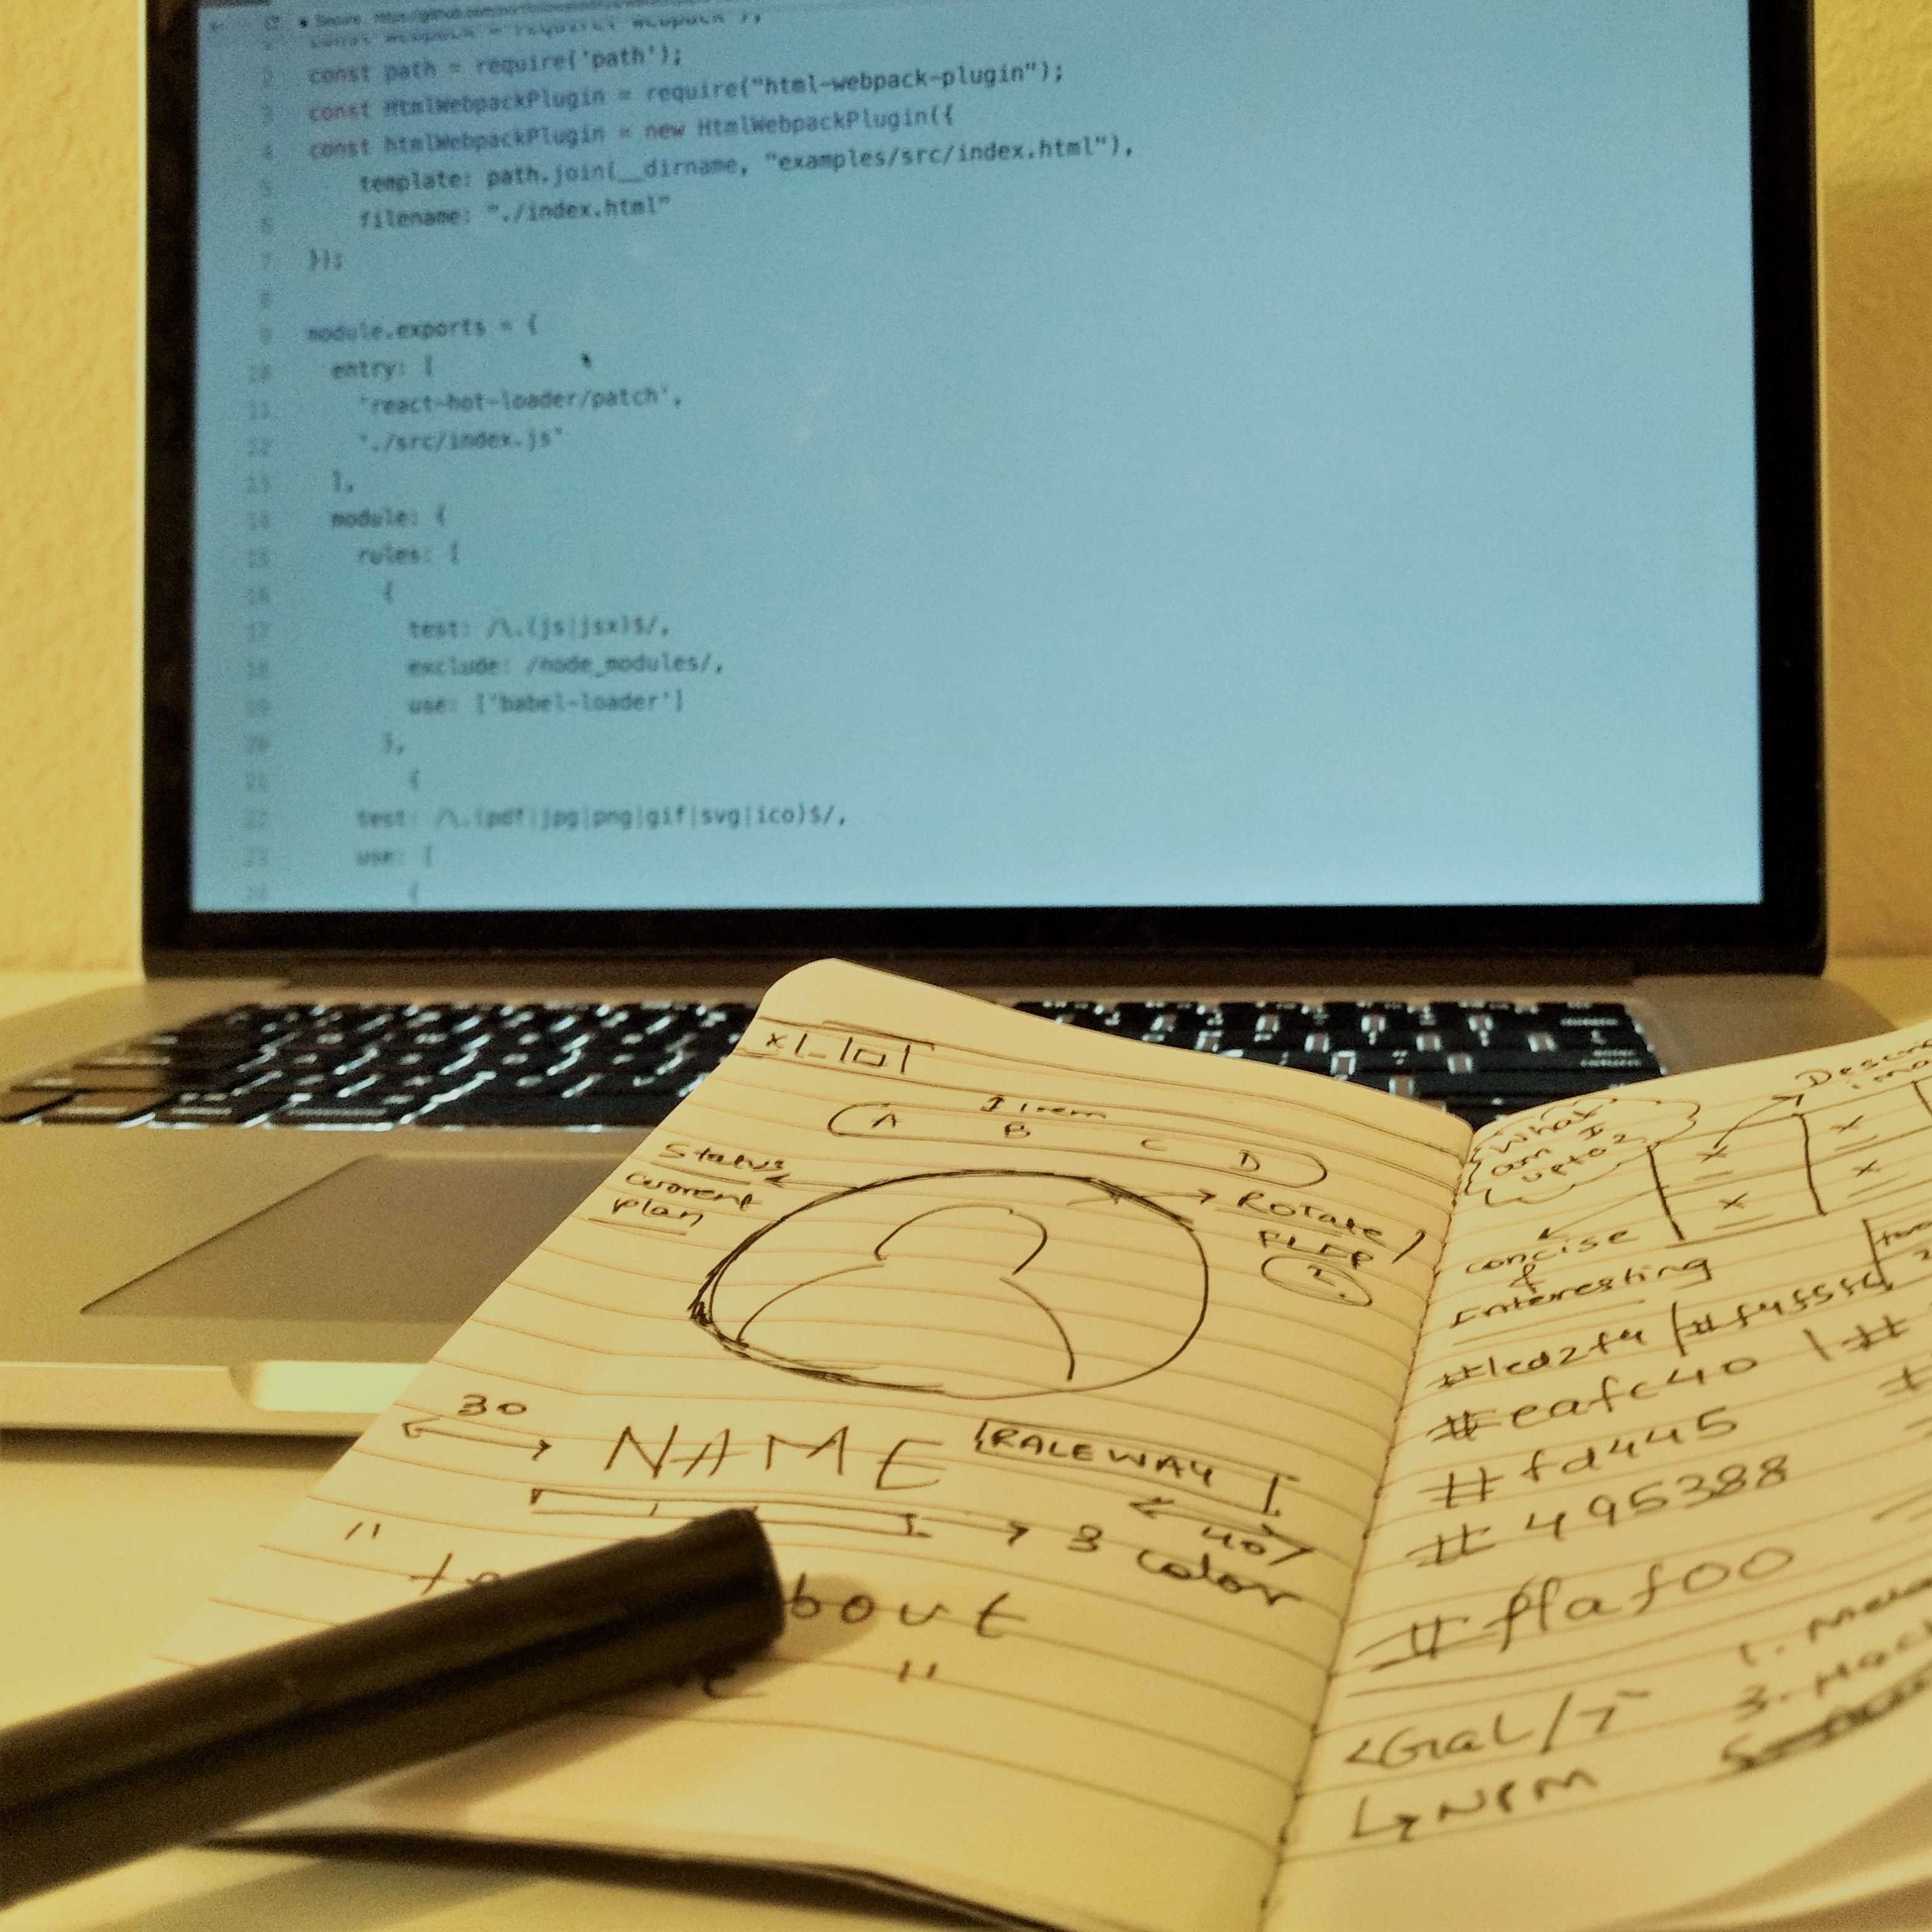 const webpack = require('webpack');
2 const path = require('path');
3 const HtmlWebpackPlugin = require("html-webpack-plugin");
4 const htmlWebpackPlugin = new HtmlWebpackPlugin({
5 template: path.join(__dirname, "examples/src/index.html"),
6 filename: "./index.html"
7 });
8
9 module.exports = {
10 entry: [
11 'react-hot-loader/patch',
12 './src/index.js'
13 ],
14 module: {
15 rules: [
16 {
17 test: /\.(js|jsx)$/,
18 exclude: /node_modules/,
19 use: ['babel-loader']
20 },
21 {
22 test: /\.(pdf|jpg|png|gif|svg|ico)$/,
23 use: [
24 {
A B C D
Status
current
plan
Rotate/
FLIP
?
30
NAME
RALEWAY
40
3
color
"
bout
"
What
am I
upto?
concise
&
Interesting
#1cd2f4
#eafc40
#fd445
#495388
#ffaf00
1.
3.
5
NPM